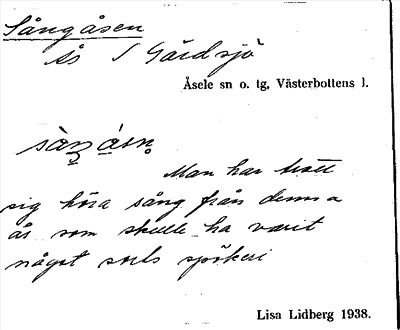 Sångåsen
ås S Gärdsjö
Åsele sn o. tg, Västerbottens l.
Man har trott
sig höra sång från denna
ås som skulle ha varit
något sorts spökeri
Lisa Lidberg 1938.